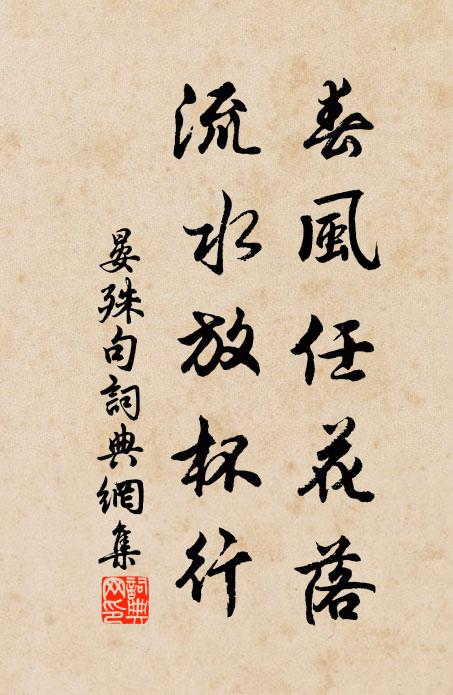 春風任花落
流水放杯行
晏殊句詞典網集
詞典網印